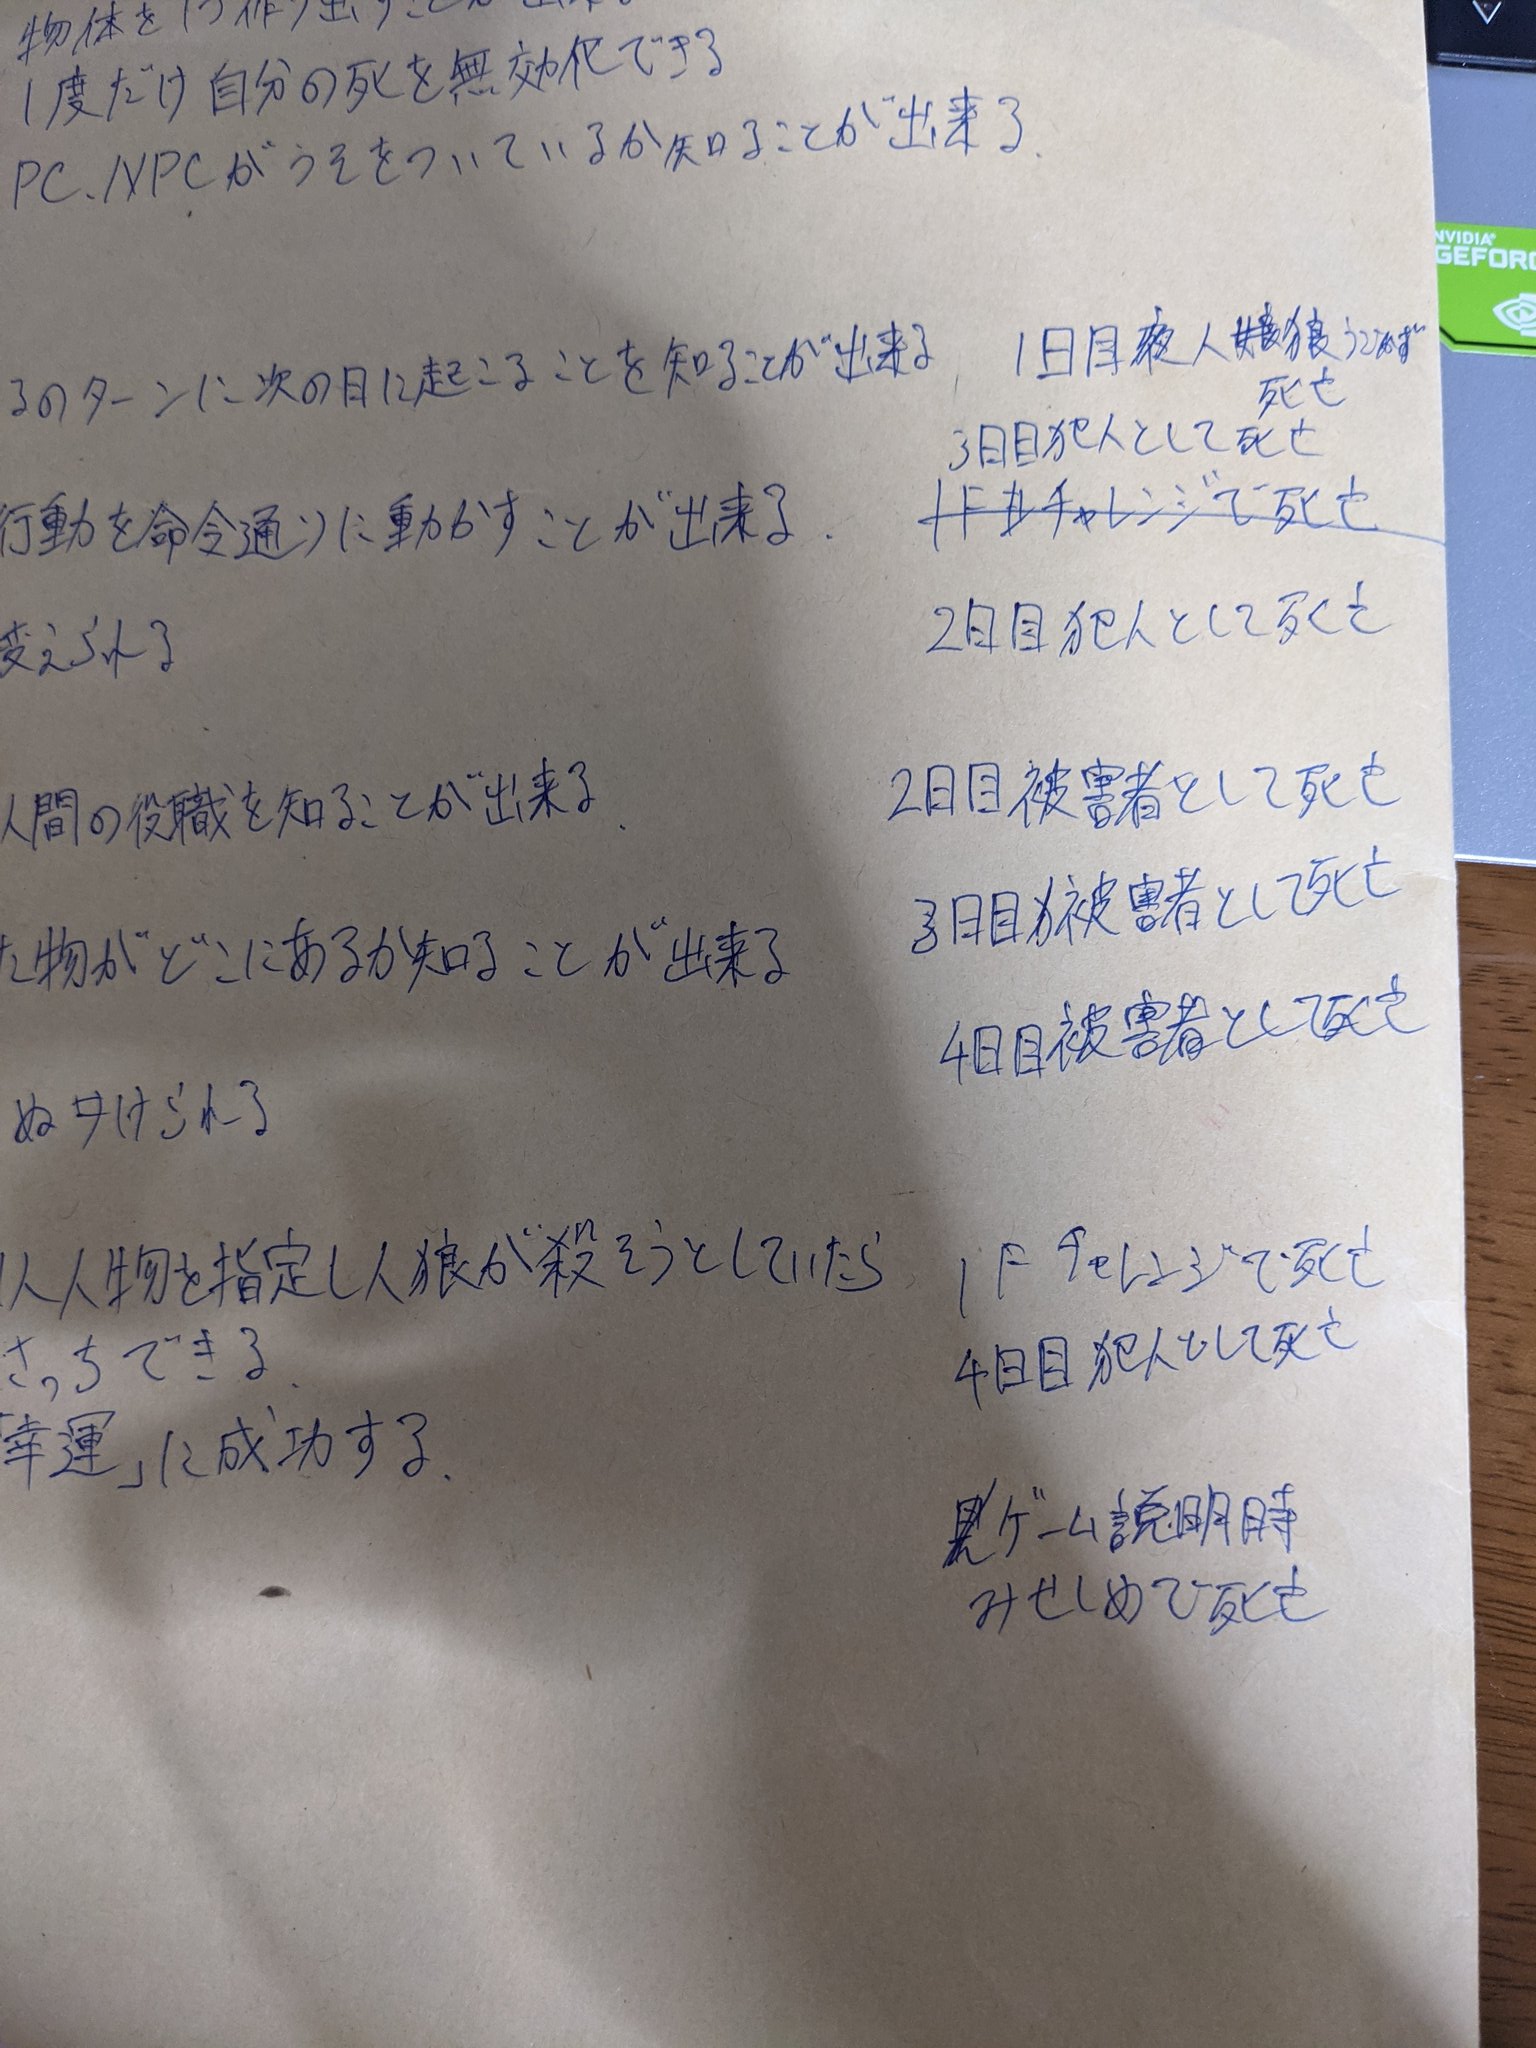 物体を1つ作り出すことが出来る
1度だけ自分の死を無効化できる
PC.NPCがうそをついているか知ることが出来る.
NVIDIA
GEFORC
るのターンに次の日に起こることを知ることが出来る
1日目夜人狼
死亡
3日目犯人として死亡
行動を命令通りに動かすことが出来る.
1ドルチャレンジで死亡
変えられる
2日目犯人として死亡
人間の役職を知ることが出来る.
2日目被害者として死亡
3日目被害者として死亡
た物がどこにあるか知ることが出来る
4日目被害者として死亡
ぬけられる
1人人物を指定し人狼が殺そうとしていたら
1ドチャレンジで死亡
さっちできる.
4日目犯人として死亡
「幸運」に成功する.
ゲーム説明時
みせしめで死亡